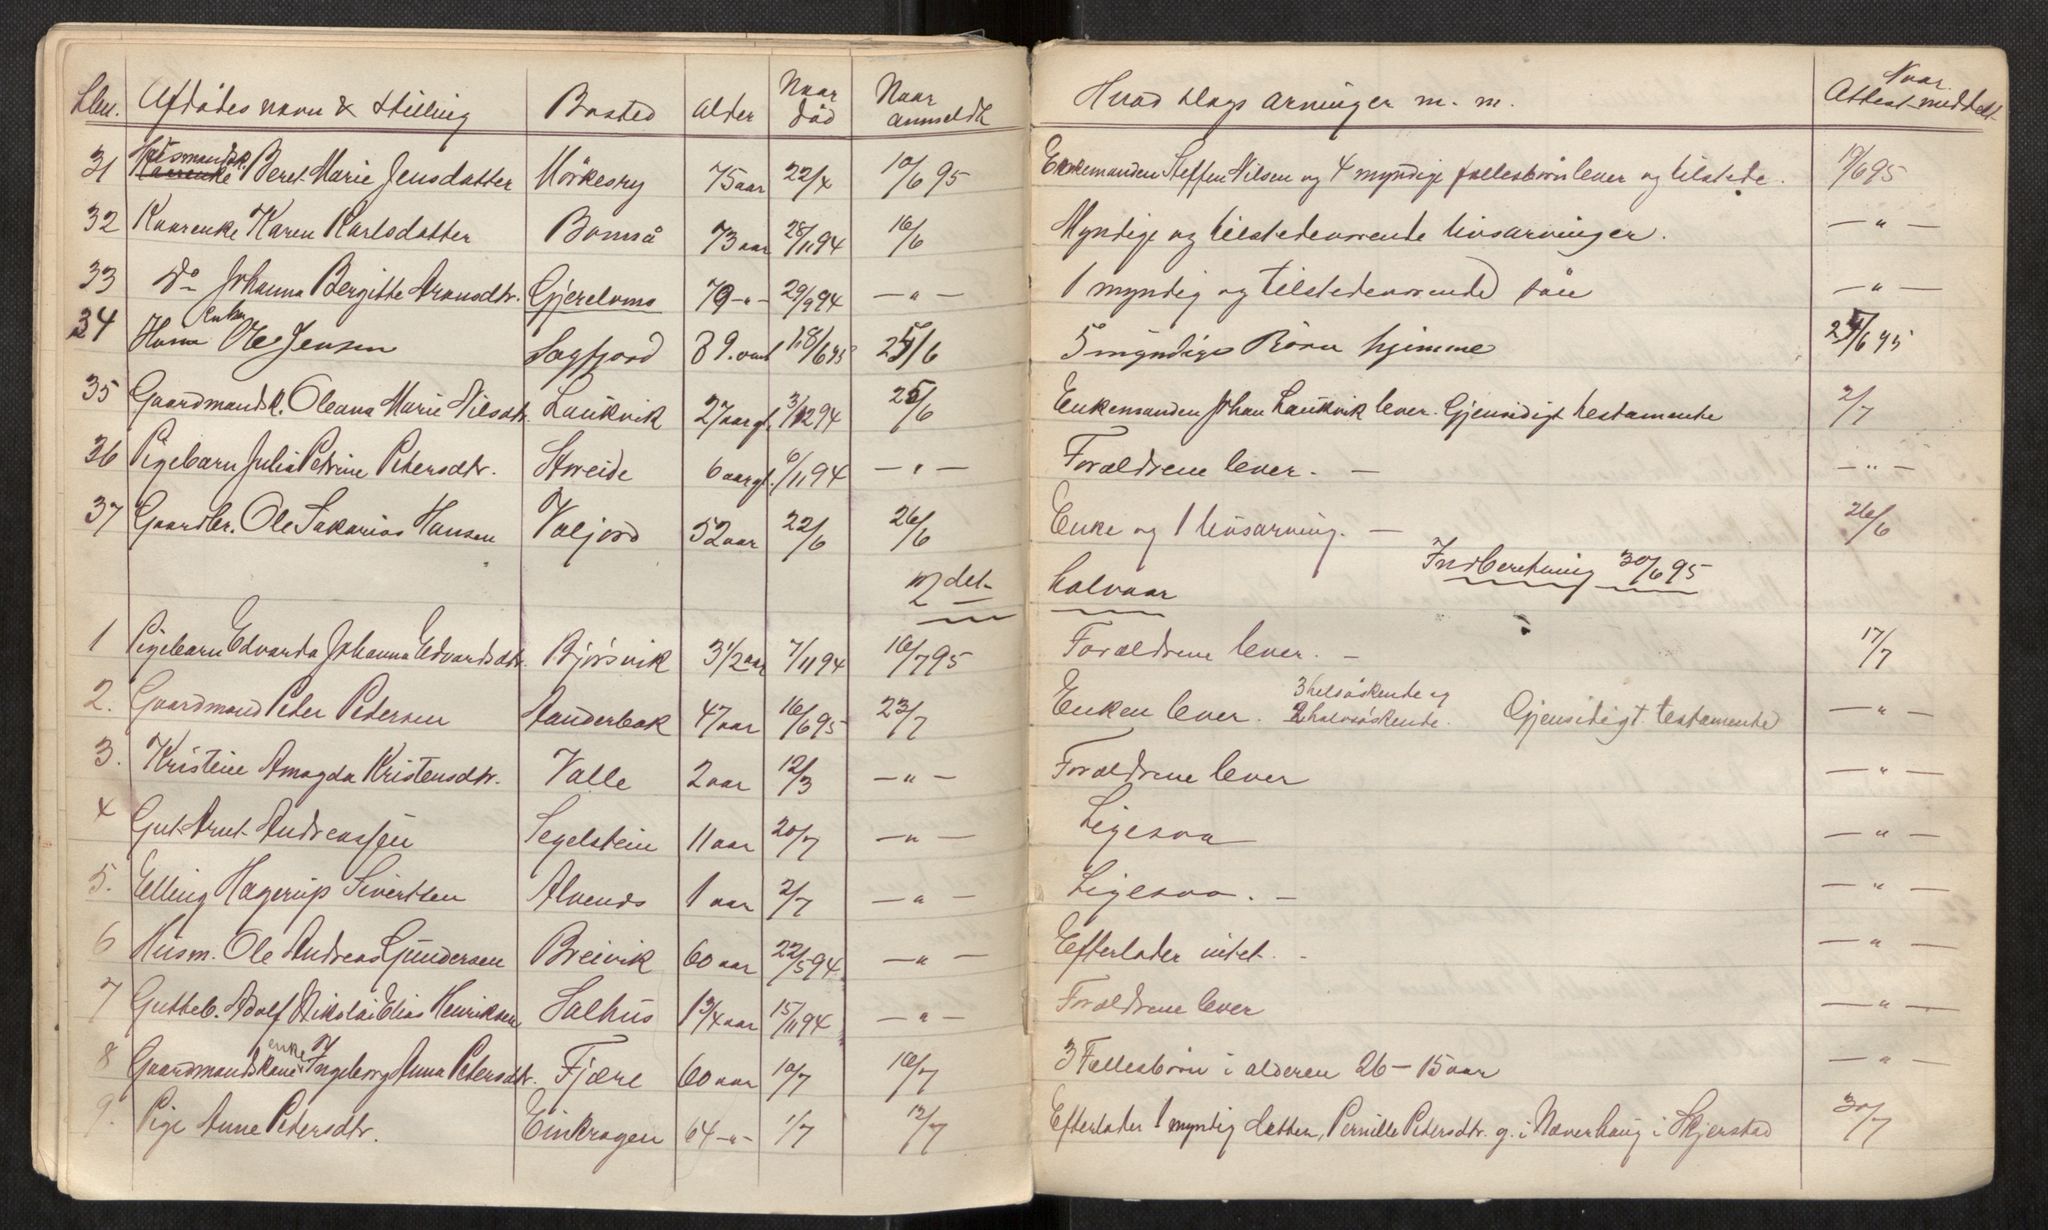 Lbn. Afdødes navn & stilling Bosted Alder Naar død Naar anmeldt Hvad slags arvinger m. m. Naar Attest meddelt
31 Husmandsk. Beret Marie Jensdatter Mörkesry 75 aar 22/4 10/6 95 Enkemanden Steffen Nilsen og 4 myndige fællesbörn lever og tilstede. 19/6 95
32 Kaarenke Karen Karlsdatter Bomså 73 aar 28/11 94 16/6 Myndige og tilstedeværende livsarvinger. — " —
33 Do Johanna Bergitte Aronsdtr. Gjerelvms 79 - " - 29/9 94 — " — 1 myndig og tilstedeværende sön — " —
34 Husm Enkm Ole Jensen Sagfjord 89. aar 18/6 95 25/6 5 myndige Börn hjemme 25/6 95
35 Gaardmandsk. Oleana Marie Nilsdtr. Laukvik 27 aar gl. 3/12 94 25/6 Enkemanden Johan Laukvik lever. Gjensidigt testamente 2/7
36 Pigebarn Julie Petrine Petersdtr. Storeide 6 aar gl. 6/11 94 — " — Forældrene lever. — — " —
37 Gaardbr. Ole Sakarias Hansen Valjord 52 aar 22/6 26/6 Enke og 1 livsarving. — 26/6
2det halvaar Indberetning 30/6 95
1 Pigebarn Edvarda Johanna Edvardsdtr. Bjørsvik 3 1/2 aar 7/11 94 16/7 95 Forældrene lever. — 17/7
2. Gaardmand Peter Petersen Standerbak 47 aar 16/6 95 23/7 Enken lever. 3 helsöskende og 2 halvsöskende. Gjensidigt testamente — " —
3. Kristine Amagda Kristensdtr. Valle 2 aar 12/3 — " — Forældrene lever — " —
4 Gut Arnt Andreassen Segelstein 11 aar 20/7 — " — Ligesaa — " —
5. Elling Hagerup Sivertsen Alvenes 1 aar 2/7 — " — Ligesaa. — — " —
6 Husm. Ole Andreas Gundersen Breivik 60 aar 22/5 94 — " — Efterlader intet. - — " —
7 Gutteb. Adolf Nikolai Elias Henriksen Salhus 1 3/4 aar 15/11 94 — " — Forældrene lever — " —
8 Gaardmandskone enke Ingeborg Anna Petersdtr. Fjære 60 aar 10/7 16/7 3 Fællesbörn i alderen 26 – 15 aar — " —
9. Pige Anne Petersdtr. Einkragen 64 - " - 1/7 12/7 Efterlader 1 myndig datter, Pernille Petersdtr. g. i Næverhaug i Skjerstad 30/7